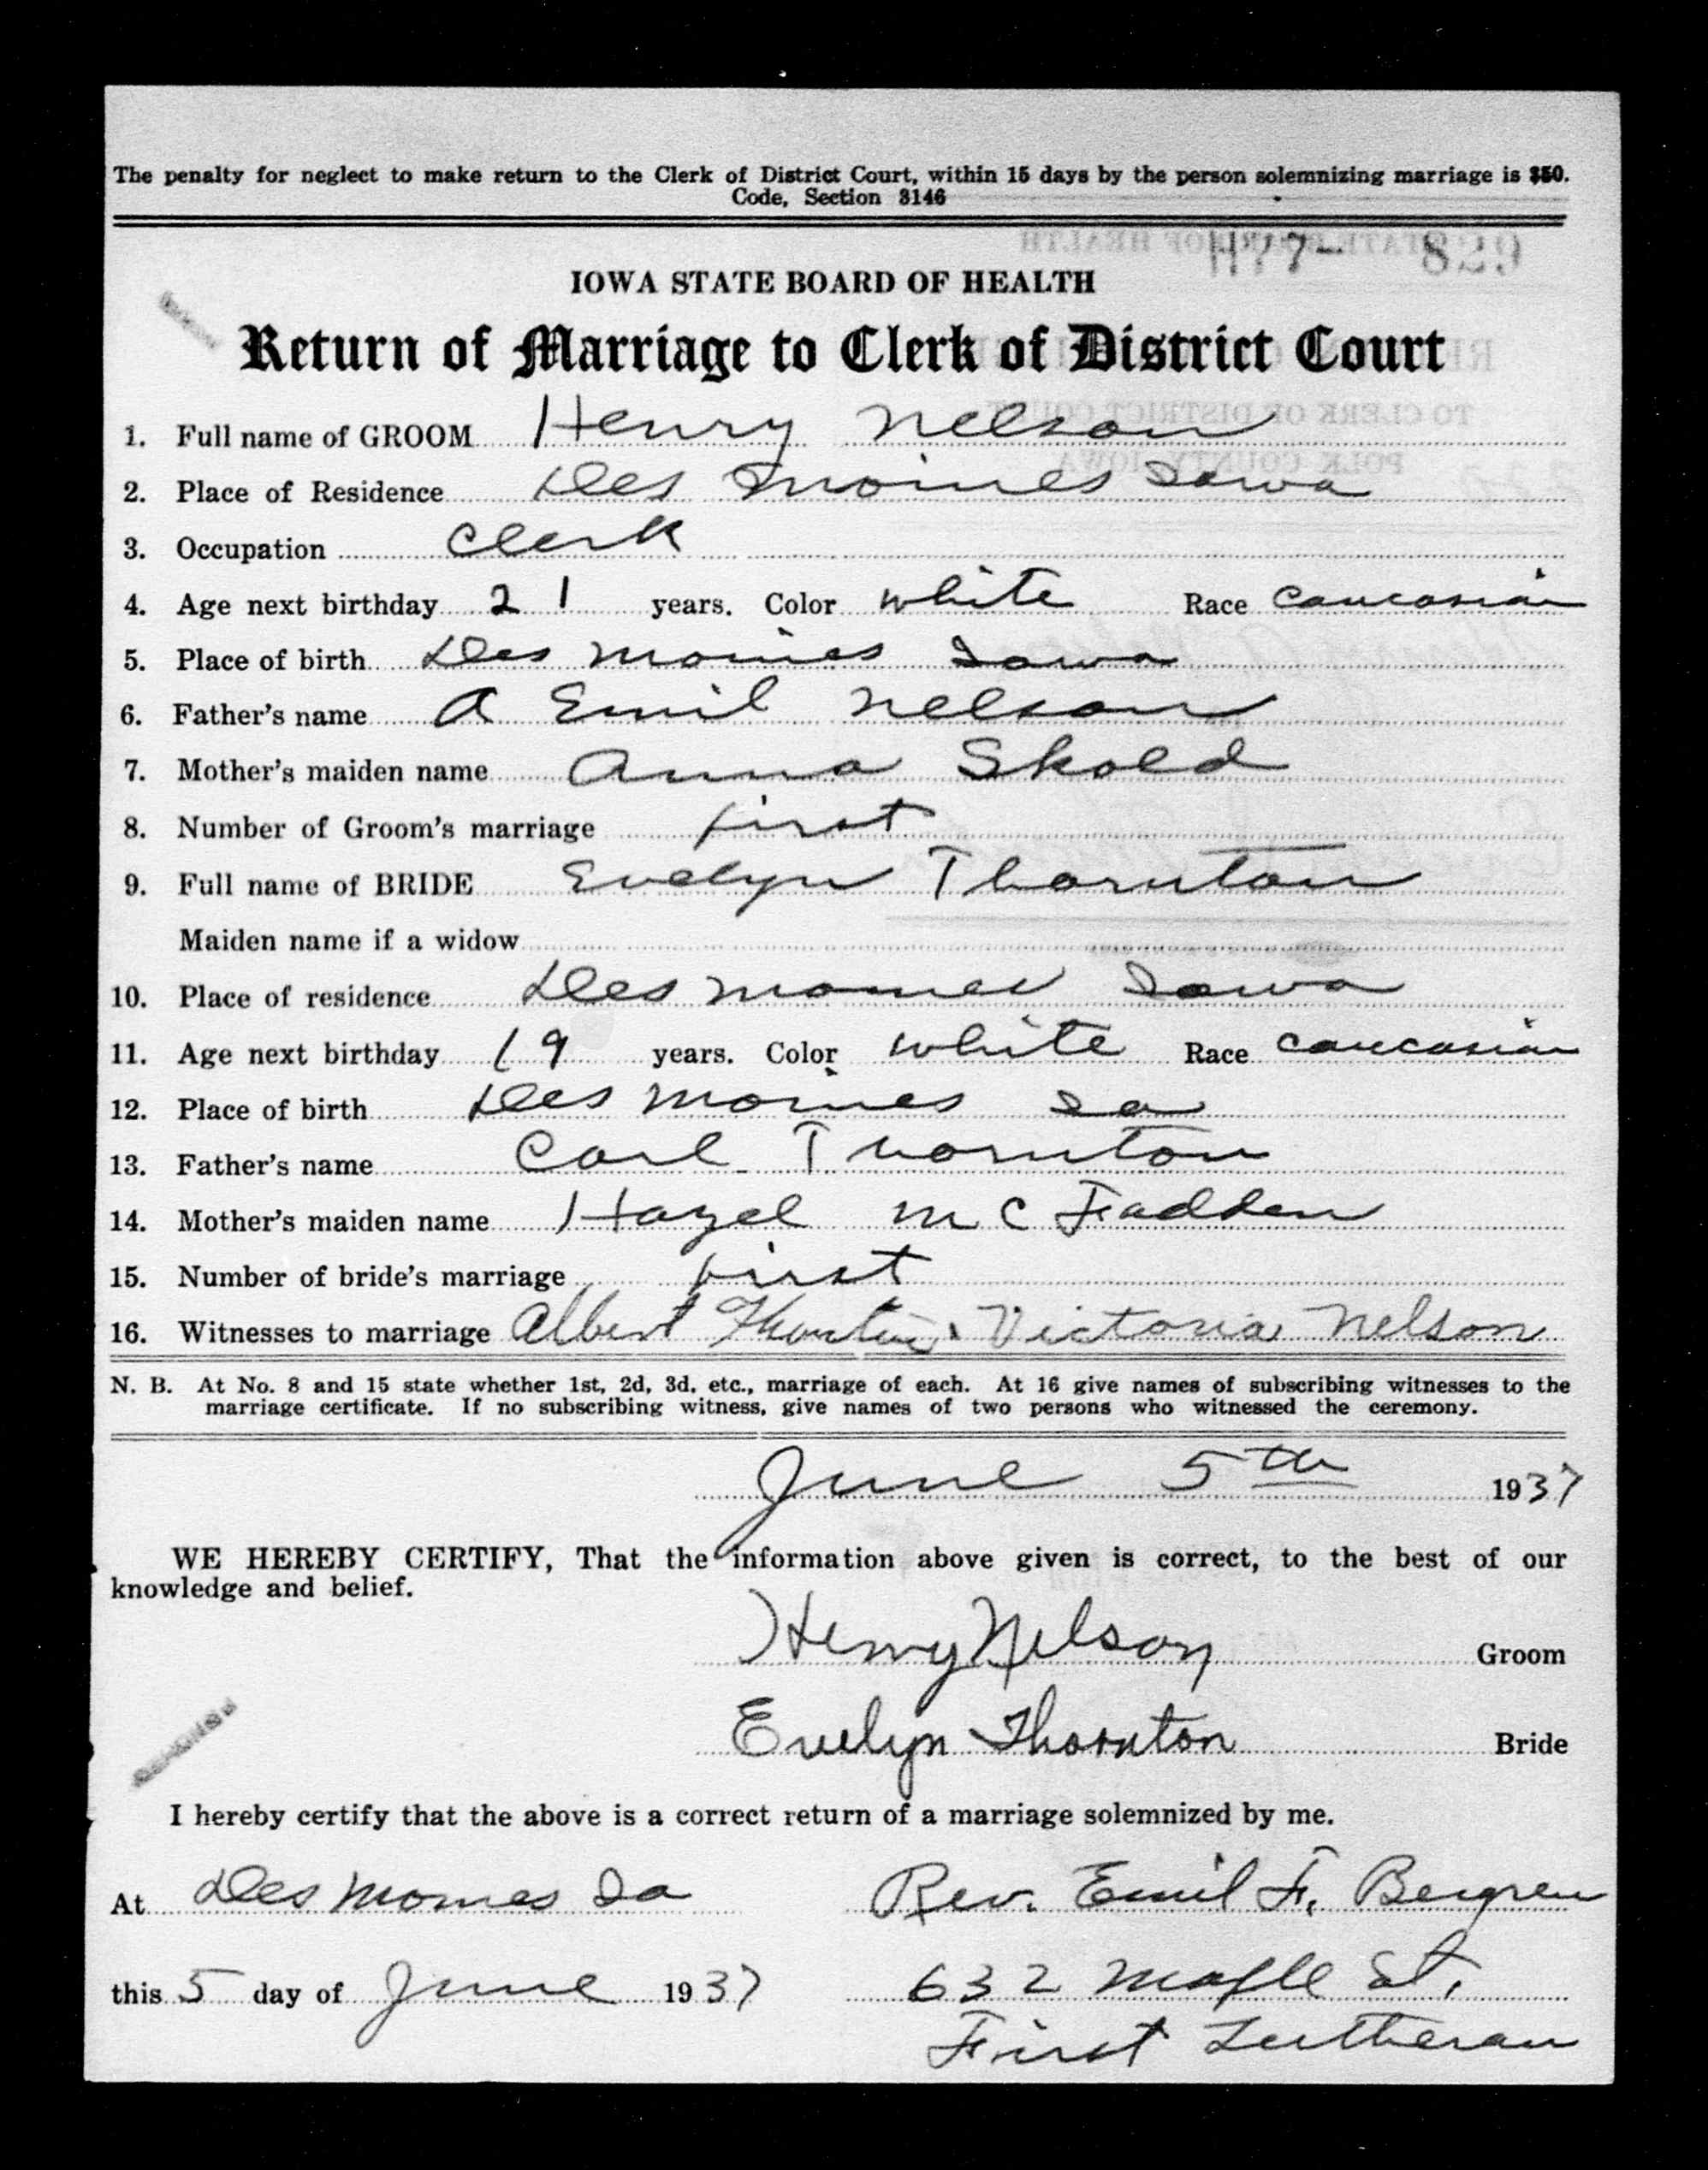 The penalty for neglect to make return to the Clerk of District Court, within 15 days by the person solemnizing marriage is $50.
Code, Section 3146
H77- 829
IOWA STATE BOARD OF HEALTH
Return of Marriage to Clerk of District Court
1. Full name of GROOM Henry Nelson
2. Place of Residence Des Moines Iowa
3. Occupation Clerk
4. Age next birthday 21 years. Color white Race Caucasian
5. Place of birth Des Moines Iowa
6. Father's name A Emil Nelson
7. Mother's maiden name Anna Skold
8. Number of Groom's marriage first
9. Full name of BRIDE Evelyn Thornton
Maiden name if a widow
10. Place of residence Des Moines Iowa
11. Age next birthday 19 years. Color white Race Caucasian
12. Place of birth Des Moines Ia
13. Father's name Carl Thornton
14. Mother's maiden name Hazel McFadden
15. Number of bride's marriage first
16. Witnesses to marriage Albert Victoria Nelson
N. B. At No. 8 and 15 state whether 1st, 2d, 3d, etc., marriage of each. At 16 give names of subscribing witnesses to the
marriage certificate. If no subscribing witness, give names of two persons who witnessed the ceremony.
June 5th 1937
WE HEREBY CERTIFY, That the information above given is correct, to the best of our
knowledge and belief.
Henry Nelson Groom
Evelyn Thornton Bride
I hereby certify that the above is a correct return of a marriage solemnized by me.
At Des Moines Ia Rev. Emil F. Bergren
this 5 day of June 1937 632 Maple St.
First Lutheran